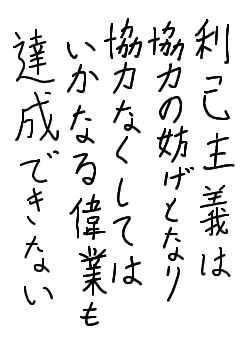 利己主義は
協力の妨げとなり
協力なくしては
いかなる偉業も
達成できない